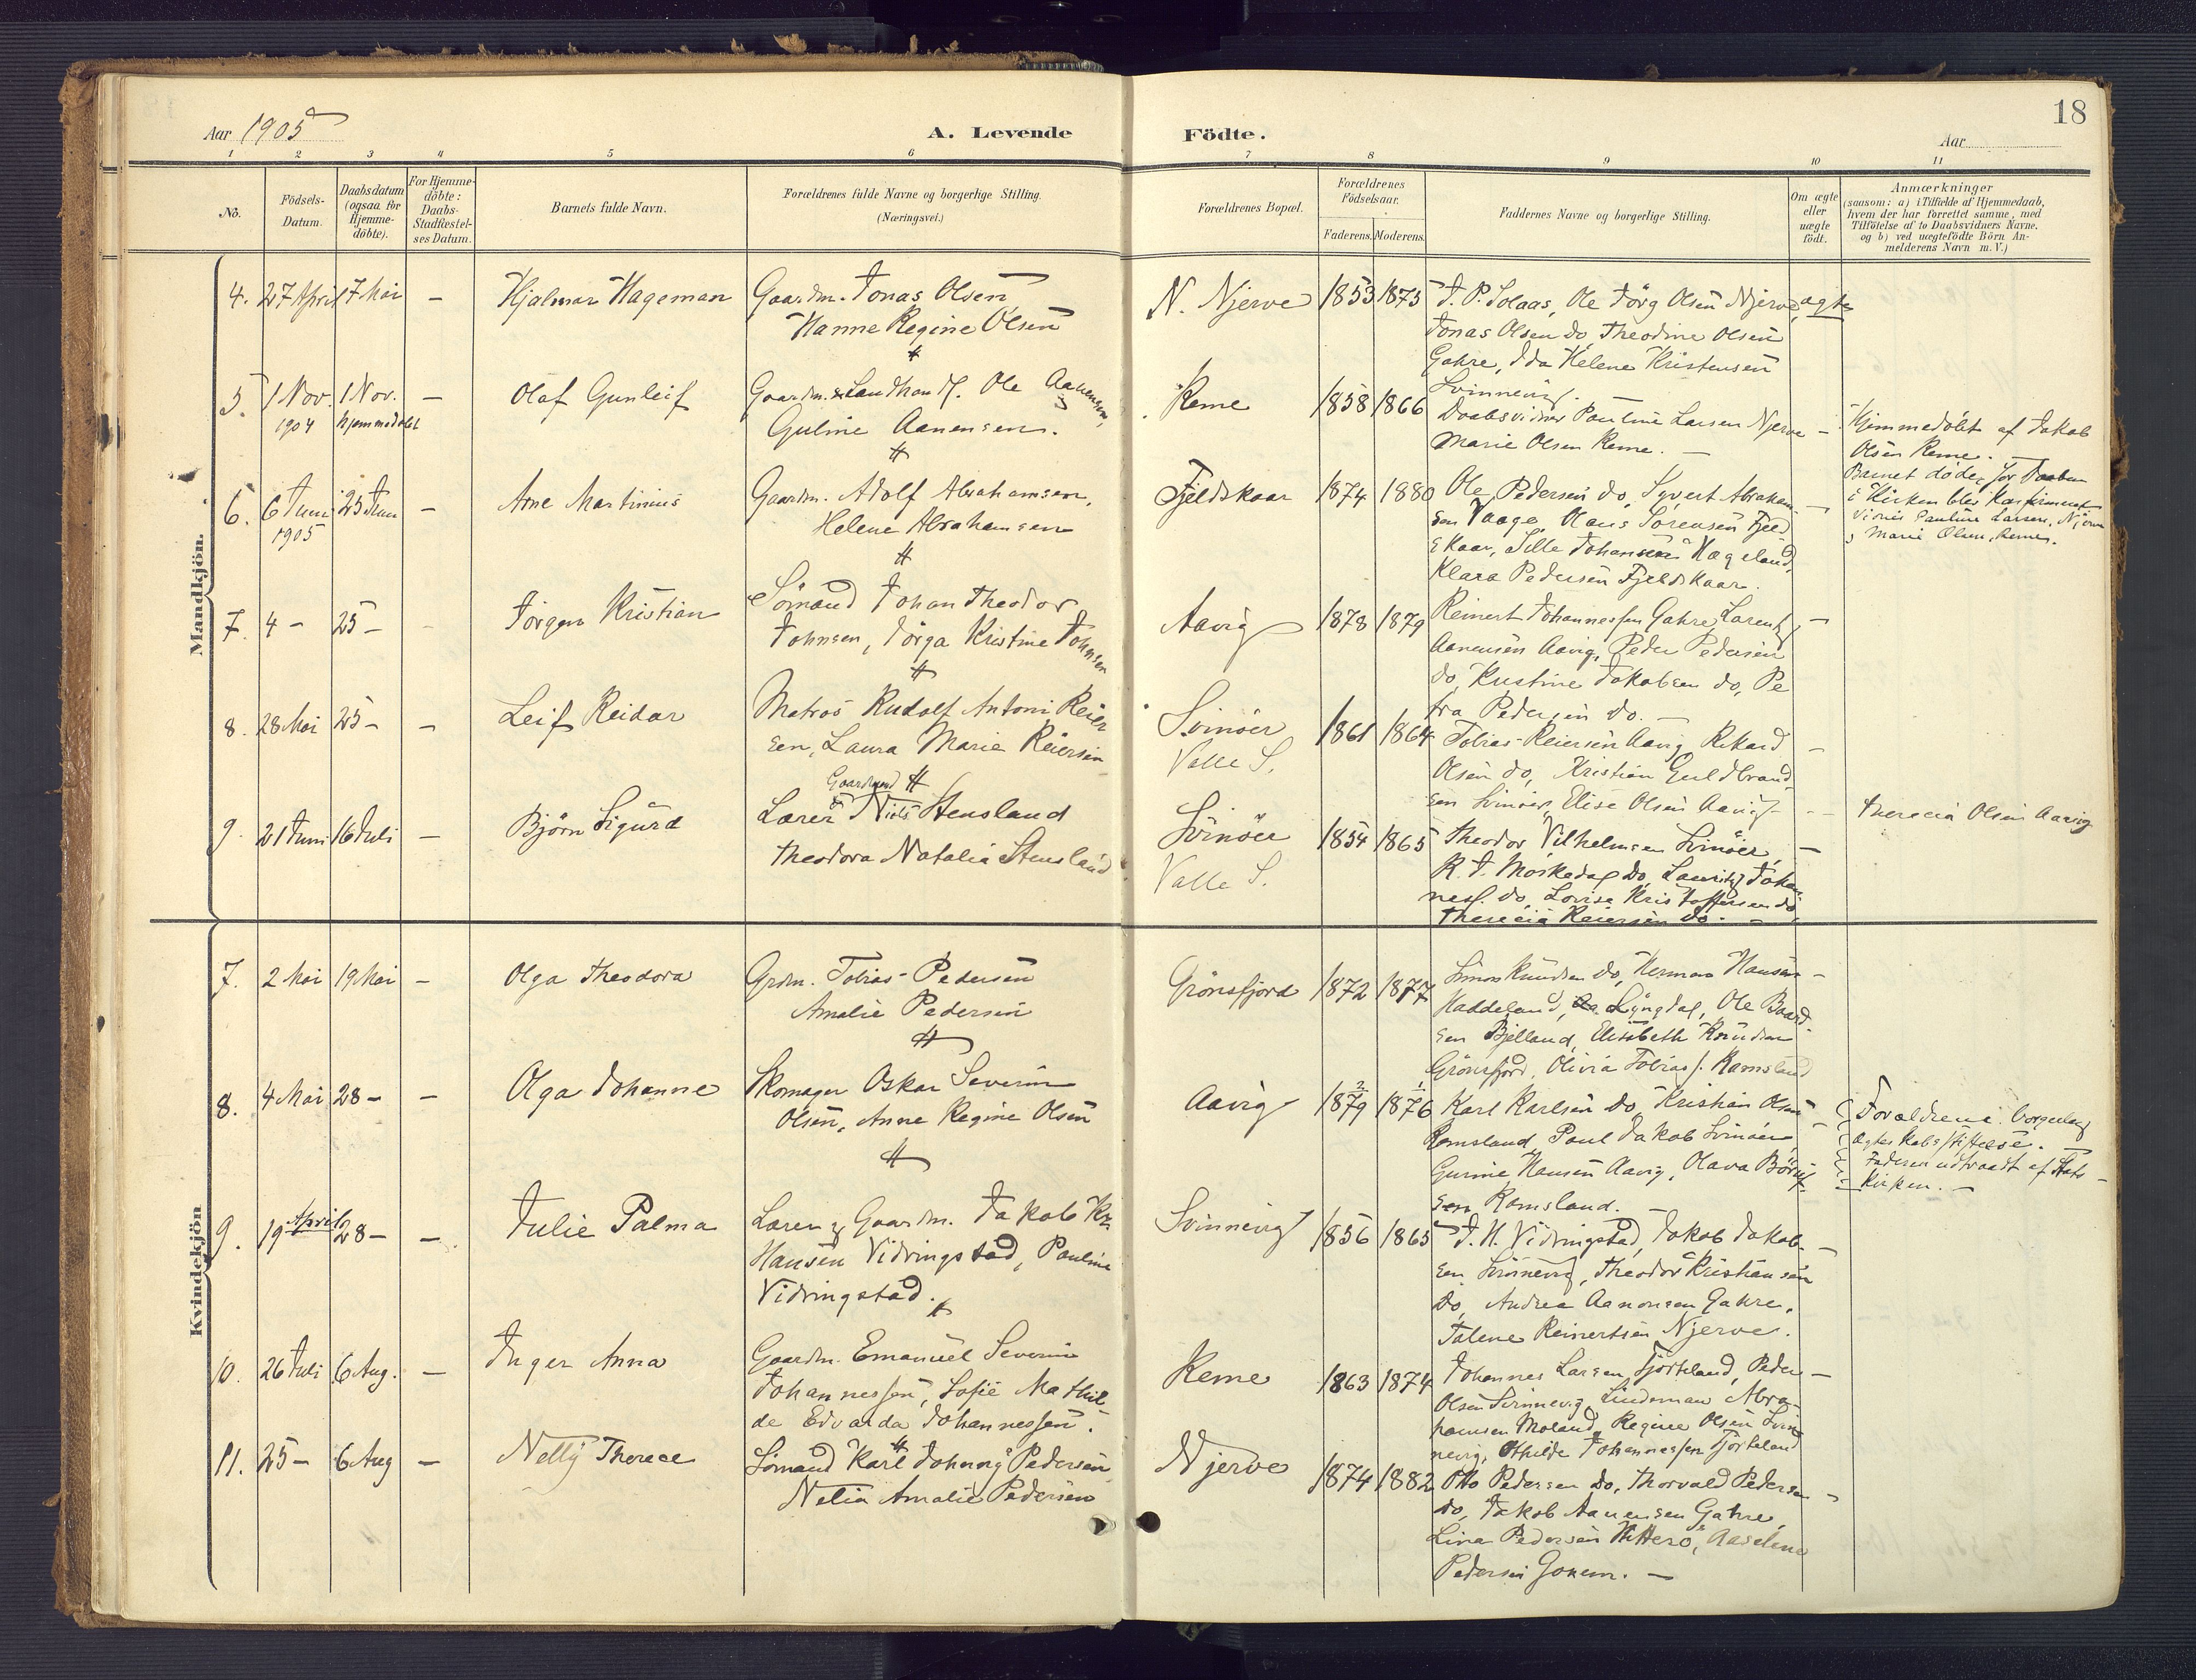 18
Aar 1905
A. Levende
Födte.
Aar
1 2 3 4 5 6 7 8 9 10 11
No.
Födsels-
Datum.
Daabsdatum
(ogsaa for
Hjemme-
döbte).
For Hjemme-
döbte:
Daabs-
Stadfæstel-
ses Datum.
Barnets fulde Navn.
Forældrenes fulde Navne og borgerlige Stilling.
(Næringsvei.)
Forældrenes Bopæl.
Forældrenes
Födselsaar.
Faderens. Moderens.
Faddernes Navne og borgerlige Stilling.
Om ægte
eller
uægte
födt.
Anmærkninger
(saasom: a) i Tilfælde af Hjemmedaab,
hvem der har forrettet samme, med
Tilföielse af to Daabsvidners Navne.
og b) ved uægtefödte Börn An-
melderens Navn m. V.)
Mandkjön.
4. 27 April 7 Mai – Hjalmar Hageman
Gaardm. Jonas Olsen
Hanne Regine Olsen
N. Njerve 1853 1875
J. P. Solaas, Ole Jörg Olsen Njerve, ægte
Jonas Olsen do, Theodine Olsen
Gahre, Ida Helene Kristensen
Svinnevig.
5. 1 Nov. 1904 1 Nov. hjemmedöbt – Olaf Gunleif
Gaardm. & Landhandl. Ole Aanensen,
Guline Aanensen.
Reme 1858 1866
Daabsvidner Pauline Larsen Njerve –
Marie Olsen Reme. –
Hjemmedöbt af Jakob
Olsen Reme. –
Barnet døde, før Daaben
i Kirken blev Konfirmeret
Vidner Pauline Larsen, Njerve
, Marie Olsen, Reme.
6. 6 Juni 1905 25 Juni – Arne Martinius
Gaardm. Adolf Abrahamsen,
Helene Abrahamsen
Fjeldskaar 1874 1880
Ole Pedersen do, Syvert Abraham- –
sen Vaage, Olaus Sørensen Fjeld-
skaar, Sille Johansen Hægeland,
Klara Pedersen Fjeldskaar.
7. 4 – 25 – – Jörgen Kristian
Sömand Johan Theodor
Johnsen, Jörga Kristine Johnsen
Aavig 1878 1879
Reinert Johannessen Gahre, Larentz –
Aanensen Aavig, Peder Pedersen
do, Kristine Jakobsen do, Pe
tra Pedersen do. –
8. 28 Mai 25 – – Leif Reidar
Matros Rudolf Antoni Reier
sen, Laura Marie Reiersen
Svinöer
Valle S.
1861 1864
Tobias Reiersen Aavig, Rikard –
Olsen do, Kristian Guldbrand
sen Svinöer, Elise Olsen Aavig –
Therecia Olsen Aavig
9. 21 Juni 16 Juli – Björn Sigurd
Gaardmand
Lærer & Niels Stensland
Theodora Natalia Stensland
Svinöer
Valle S.
1854 1865
Theodor Vilhelmsen Svinöer, –
K. J. Moskedal do, Lauritz Johan
nes. do, Lovise Kristoffersen do,
Therecia Reiersen do. –
Kvindekjön
7. 2 Mai 19 Mai – Olga Theodora
Grdm. Tobias Pedersen
Amalie Pedersen
Grönsfjord 1872 1877
Simon Knudsen do, Herman Hansen –
Haddeland, Lyngdal, Ole Baard-
sen Bjelland, Elisabeth Knudsen
Grönsfjord, Olivia Tobias. Ramsland
8. 4 Mai 28 – – Olga Johanne
Skomager Oskar Severin
Olsen, Anne Regine Olsen
Aavig 2/1879 1/1876
Karl Karlsen do, Kristian Olsen –
Romsland, Poul Jakob Svinöer,
Gurine Hansen Aavig, Olava Böruf-
sen Romsland. –
Forældrene borgerlig
Ægteskabsstiftelse. –
Faderen udtraadt af Stats-
kirken. –
9. 19 April 28 – – Julie Palma
Lærer & Gaardm. Jakob Kr.
Hansen Vidringstad, Pauline
Vidringstad.
Svinnevig 1856 1865
J. H. Vidringstad, Jakob Jakob- –
sen Svinnevig, Theodor Kristiansen
do, Andrea Aanonsen Gahre,
Talene Reinertsen Njerve.
10. 26 Juli 6 Aug. – Inger Anna
Gaardm. Emanuel Severin
Johannessen, Sofie Mathil-
de Edvarda Johannessen.
Reme 1863 1874
Johannes Larsen Tjorteland, Peder –
Olsen Svinnevig, Lindeman Abra-
hamsen Moland, Regine Olsen Svin-
nevig, Othilde Johannessen Tjorteland
11. 25 – 6 Aug – Nelly Therece
Sömand Karl Johnny Pedersen
Nelia Amalie Pedersen
Njerve 1874 1882
Otto Pedersen do, Thorvald Pedersen –
do, Jakob Aanensen Gahre,
Lina Pedersen Hitterö, Aaselene
Pedersen Gonem. –